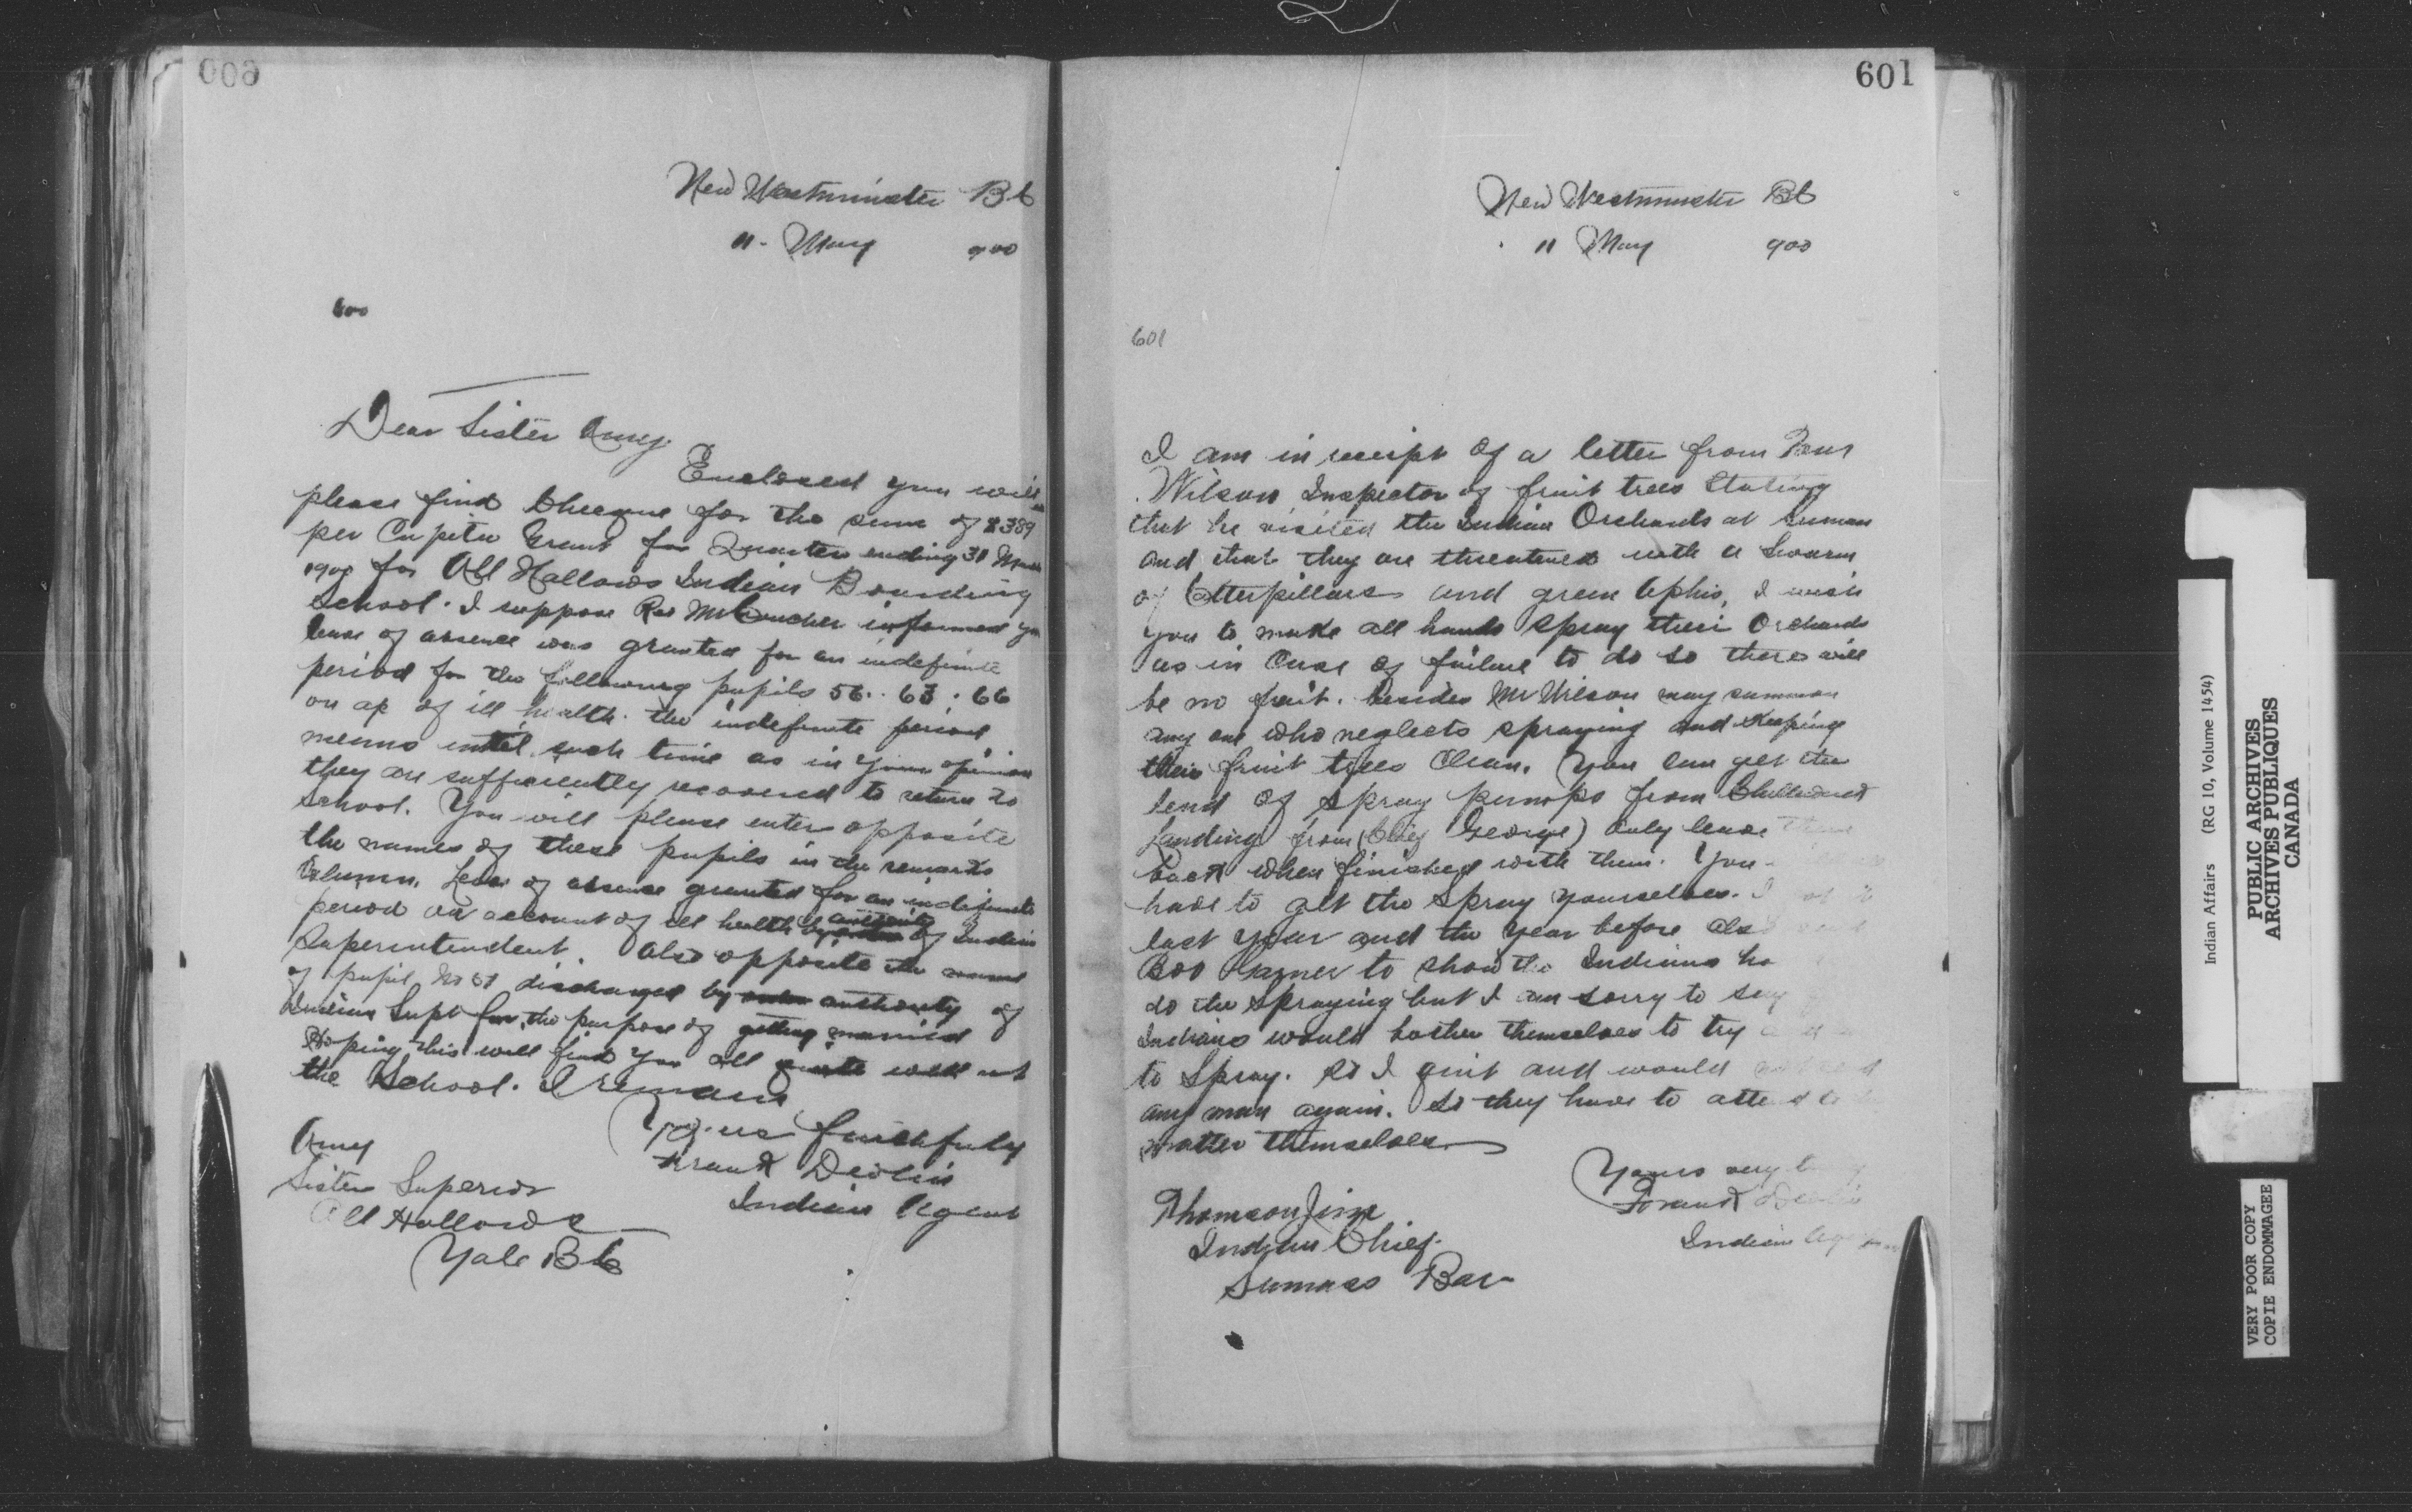 600
New Westminster BC
11. May 900
600
Dear Sister Amy.
Enclosed you will
please find Cheque for the sum of $389
per Capita Grant for Quarter ending 31 March
1900 for All Hallows Indian Boarding
School. I suppose Rev Mr Croucher informed you
leave of absence was granted for an indefinite
period for the following pupils 56. 63. 66
on ac of ill health. the indefinite period
means until such time as in your opinion
they are sufficiently recovered to return to
School. You will please enter opposite
the names of these pupils in the remarks
Column. Leave of absence granted for an indefinite
period on account of ill health by authority of Indian
Superintendent. Also opposite the name
of pupil No 51 discharged by order authority of
Indian Supt for the purpose of getting married
Hoping this will find you all quite well at
the School. I remain
Yours faithfuly
Frank Devlin
Indian Agent
Amy
Sister Superior
All Hallows
Yale BC
601
New Westminster BC
11 May 900
601
I am in receipt of a letter from
Wilson Inspector of fruit trees Stating
that he visited the Indian Orchards at Sumas
and that they are threatened with a Swarm
of Catterpillars and green Aphis, I wish
you to make all hands spray their Orchards
as in Case of failure to do so there will
be no fruit. besides Mr Wilson may summon
any one who neglects spraying and Keeping
their fruit trees Clean. You can get the
lend of spray pumps from Chilliwack
Landing from (Chief George) Only leave them
back when finished with them. You
have to get the Spray yourselves. I
last year and the year before also
Boo Garner to show the Indians ho
do the spraying but I am sorry to say
Indians would bother themselves to try
to Spray. so I aint and would
any man again. So they have to attend to
matter themselves.
Yours very truly
Frank Devlin
Indian Agent
Thomson Jim
Indian Chief.
Sumass Bar
Indian Affairs (RG 10, Volume 1454)
PUBLIC ARCHIVES
ARCHIVES PUBLIQUES
CANADA
VERY POOR COPY
COPIE ENDOMMAGEE